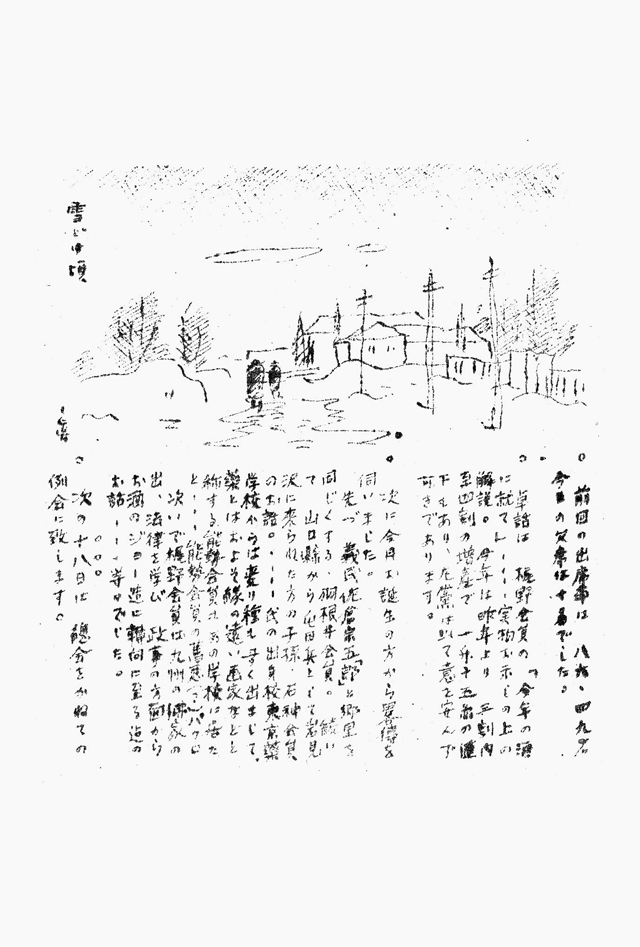 雪どけ頃
○ 前回の出席率は 八六、四九名
今日の欠席は十名でした。
○ 卓話は 梶野会員の「今年の酒
に就て」……実物お示しの上の
解説。今年は昨年より 三割内
至四割の増産で 一升十五銭の
下もあり、左党は以て意を安んず
可きであります。
○ 次に今月お誕生の方から異様を
伺いました。
先づ 義民佐倉宗五郎と郷里を
同じくする 羽根井会員。続い
て 山口縣から屯田兵として岩見
沢に来られた方の子孫、石神会員
のお話。……氏の出身校東京薬
学校からは変り種も多く出まして、
薬とはおよそ縁の遠い画家などと
称する能勢会員も
と……能勢会員の
次いで梶野会員は九州の佛家の
出、法律を学び 政事の方面から
お酒のジョー造に轉向に至る迄の
お話……等々でした。
○○○
次の十八日は 總会をかねての
例会に致します。